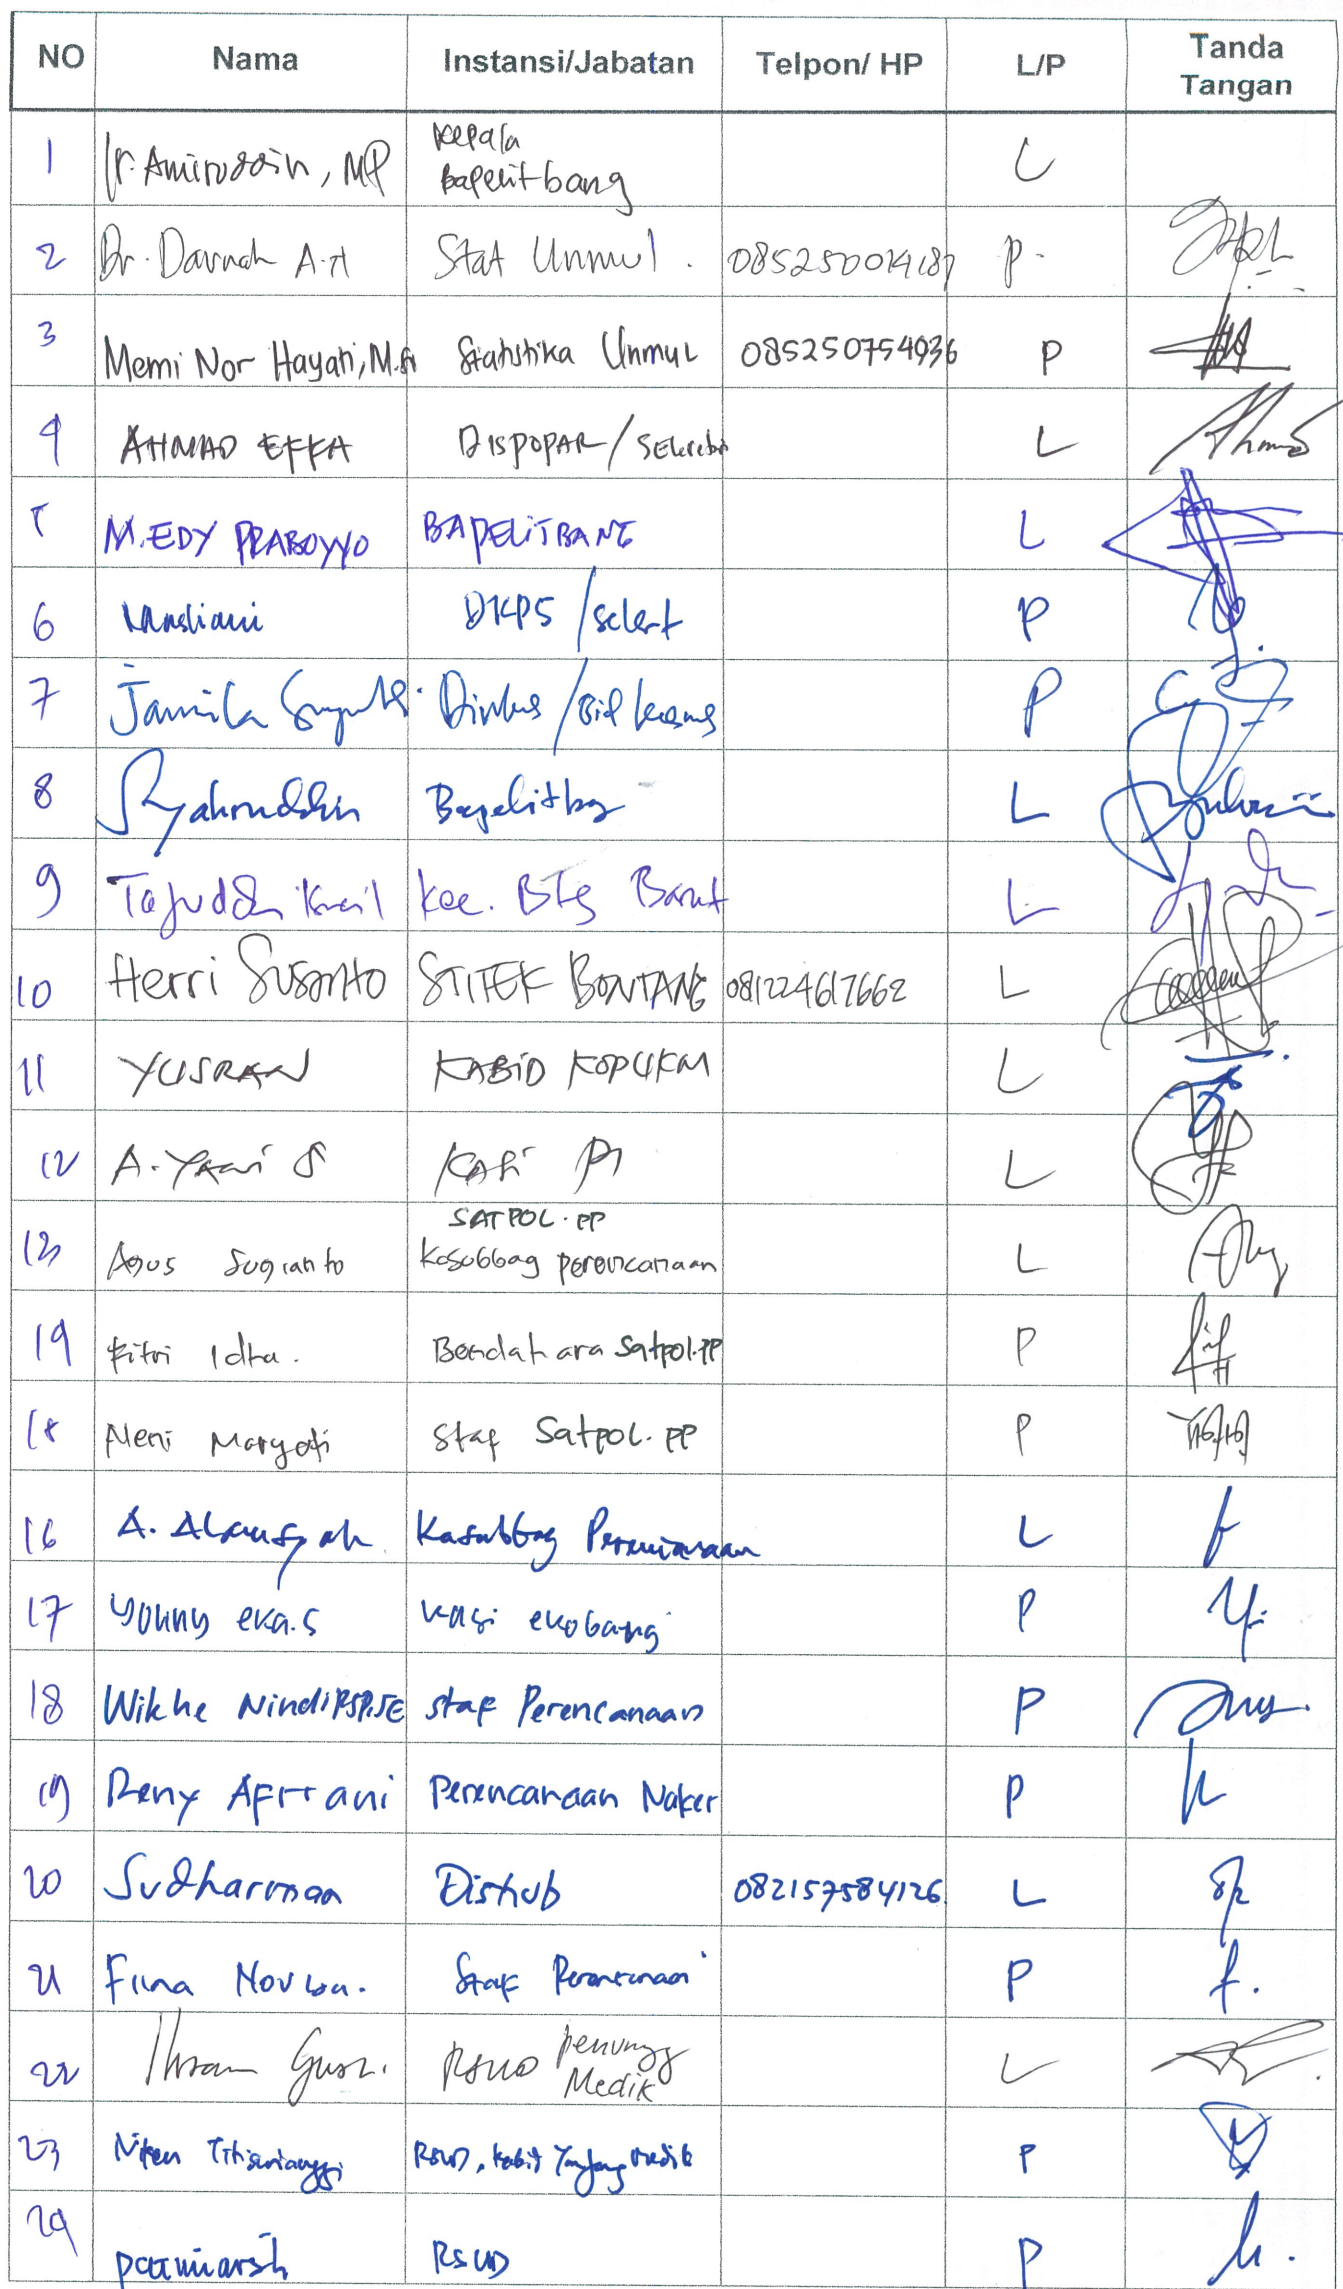 NO Nama Instansi/Jabatan Telpon/ HP L/P Tanda Tangan
1 Ir. Amiruddin, MP Kepala Bapelitbang L
2 Dr. Darnah A.N Stat Unmul. 085250014187 P.
3 Memi Nor Hayati, M.Si Statistika Unmul 085250754936 P
4 AHMAD EFFA DISPOPAR/Sekretaris L
5 M.EDY PRABOYYO BAPELITBANG L
6 DKP5 /sekrt P
7 Jamila P
8 Syahruddin Bapelitbg L
9 Tajuddin Kec. Btg Barat L
10 Herri Susanto STITEK BONTANG 081224617662 L
11 YUSRAN KABID KOPUKM L
12 A. Yani S KASI PI L
13 Agus Sugianto SATPOL.PP Kasubbag perencanaan L
14 Fitri Idha. Bendahara Satpol.PP P
15 Neni Maryati Staf Satpol.PP P
16 A. Alamsyah Kasubbag Perencanaan L
17 Younny eka.S kasi ekobang P
18 Wikhe Nindi staf Perencanaan P
19 Reny Afriani Perencanaan Naker P
20 Sudharman Dishub 082157584126 L
21 Fiina Novita. Staf Perencanaan P
22 RSUD Penunjg Medik L
23 Niken RSUD, Kabid Medik P
24 RSUD P